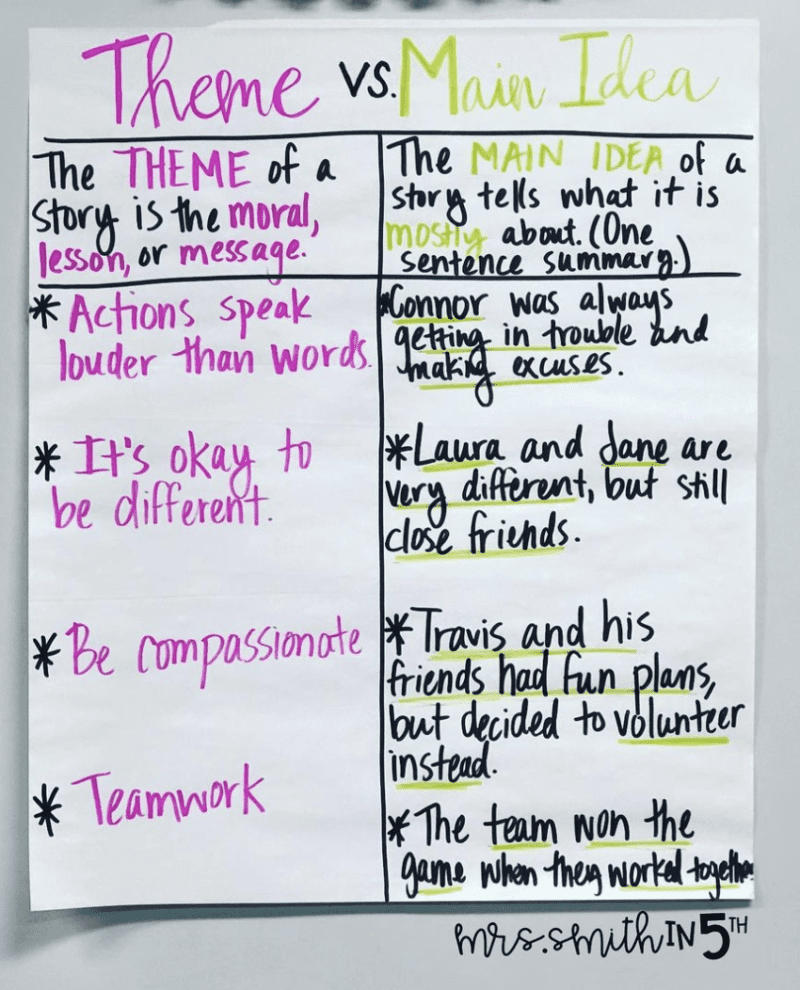 Theme vs. Main Idea
The THEME of a
story is the moral,
lesson, or message.
The MAIN IDEA of a
story tells what it is
mostly about. (One
sentence summary.)
* Actions speak
louder than words.
*Connor was always
getting in trouble and
making excuses.
* It's okay to
be different.
*Laura and Jane are
very different, but still
close friends.
* Be compassionate
*Travis and his
friends had fun plans,
but decided to volunteer
instead.
* Teamwork
*The team won the
game when they worked together.
mrs.smith IN 5TH